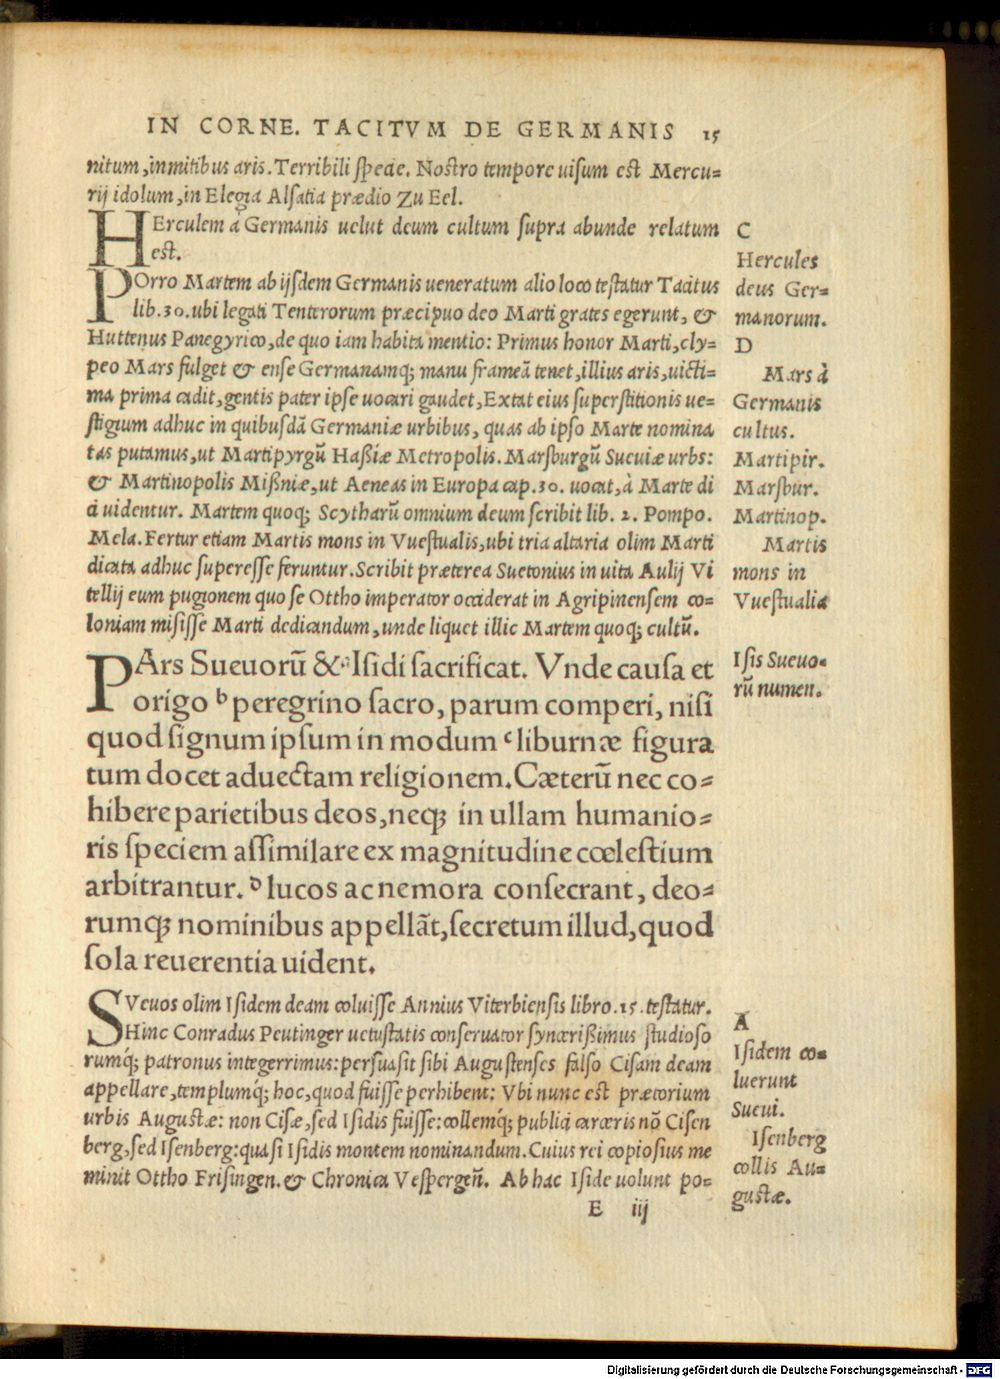 IN CORNE. TACITVM DE GERMANIS 15
nitum, inmitibus aris. Terribili specie. Nostro tempore uisum est Mercu=
rij idolum, in Elegia Alsatia prædio Zu Eel.
HErculem à Germanis uelut deum cultum supra abunde relatum
est.
POrro Martem ab ijsdem Germanis ueneratum alio loco testatur Tacitus
lib. 30. ubi legati Tenterorum præcipuo deo Marti grates egerunt, &
Huttenus Panegyrico, de quo iam habita mentio: Primus honor Marti, cly=
peo Mars fulget & ense Germanamq; manu frameā tenet, illius aris, uicti=
ma prima cadit, gentis pater ipse uocari gaudet, Extat eius superstitionis ue=
stigium adhuc in quibusdā Germaniæ urbibus, quas ab ipso Marte nomina
tas putamus, ut Martipyrgū Haßiæ Metropolis. Marsburgū Sueuiæ urbs:
& Martinopolis Mißniæ, ut Aeneas in Europa cap. 30. uocat, à Marte di
cta uidentur. Martem quoq; Scytharū omnium deum scribit lib. 2. Pompo.
Mela. Fertur etiam Martis mons in Vuestualis, ubi tria altaria olim Marti
dicata adhuc superesse feruntur. Scribit præterea Suetonius in uita Aulij Vi
tellij eum pugionem quo se Ottho imperator occiderat in Agripinensem co=
loniam misisse Marti dedicandum, unde liquet illic Martem quoq; cultū.
PArs Sueuorū & Isidi sacrificat. Vnde causa et
origo b peregrino sacro, parum comperi, nisi
quod signum ipsum in modum c liburnæ figura
tum docet aduectam religionem. Cæterū nec co=
hibere parietibus deos, neq; in ullam humanio=
ris speciem assimilare ex magnitudine cœlestium
arbitrantur. D lucos ac nemora consecrant, deo=
rumq; nominibus appellāt, secretum illud, quod
sola reuerentia uident.
SVeuos olim Isidem deam coluisse Annius Viterbiensis libro. 15. testatur.
Hinc Conradus Peutinger uetustatis conseruator synceríßimus studioso
rumq́; patronus integerrimus: persuasit sibi Augustenses falso Cisam deam
appellare, templumq́; hoc, quod fuisse perhibent: Vbi nunc est prætorium
urbis Augustæ: non Cisæ, sed Isidis fuisse: collemq́; publici carceris nō Cisen
berg, sed Isenberg: quasi Isidis montem nominandum. Cuius rei copiosius me
minit Ottho Frisingen. & Chronica Vespergen̄. Ab hac Iside uolunt po=
E iij
C
Hercules
deus Ger=
manorum.
D
Mars à
Germanis
cultus.
Martipir.
Marsbur.
Martinop.
Martis
mons in
Vuestualia
Isis Sueuo=
rū numen.
A
Isidem co=
luerunt
Sueui.
Isenberg
collis Au=
gustæ.
Digitalisierung gefördert durch die Deutsche Forschungsgemeinschaft - DFG